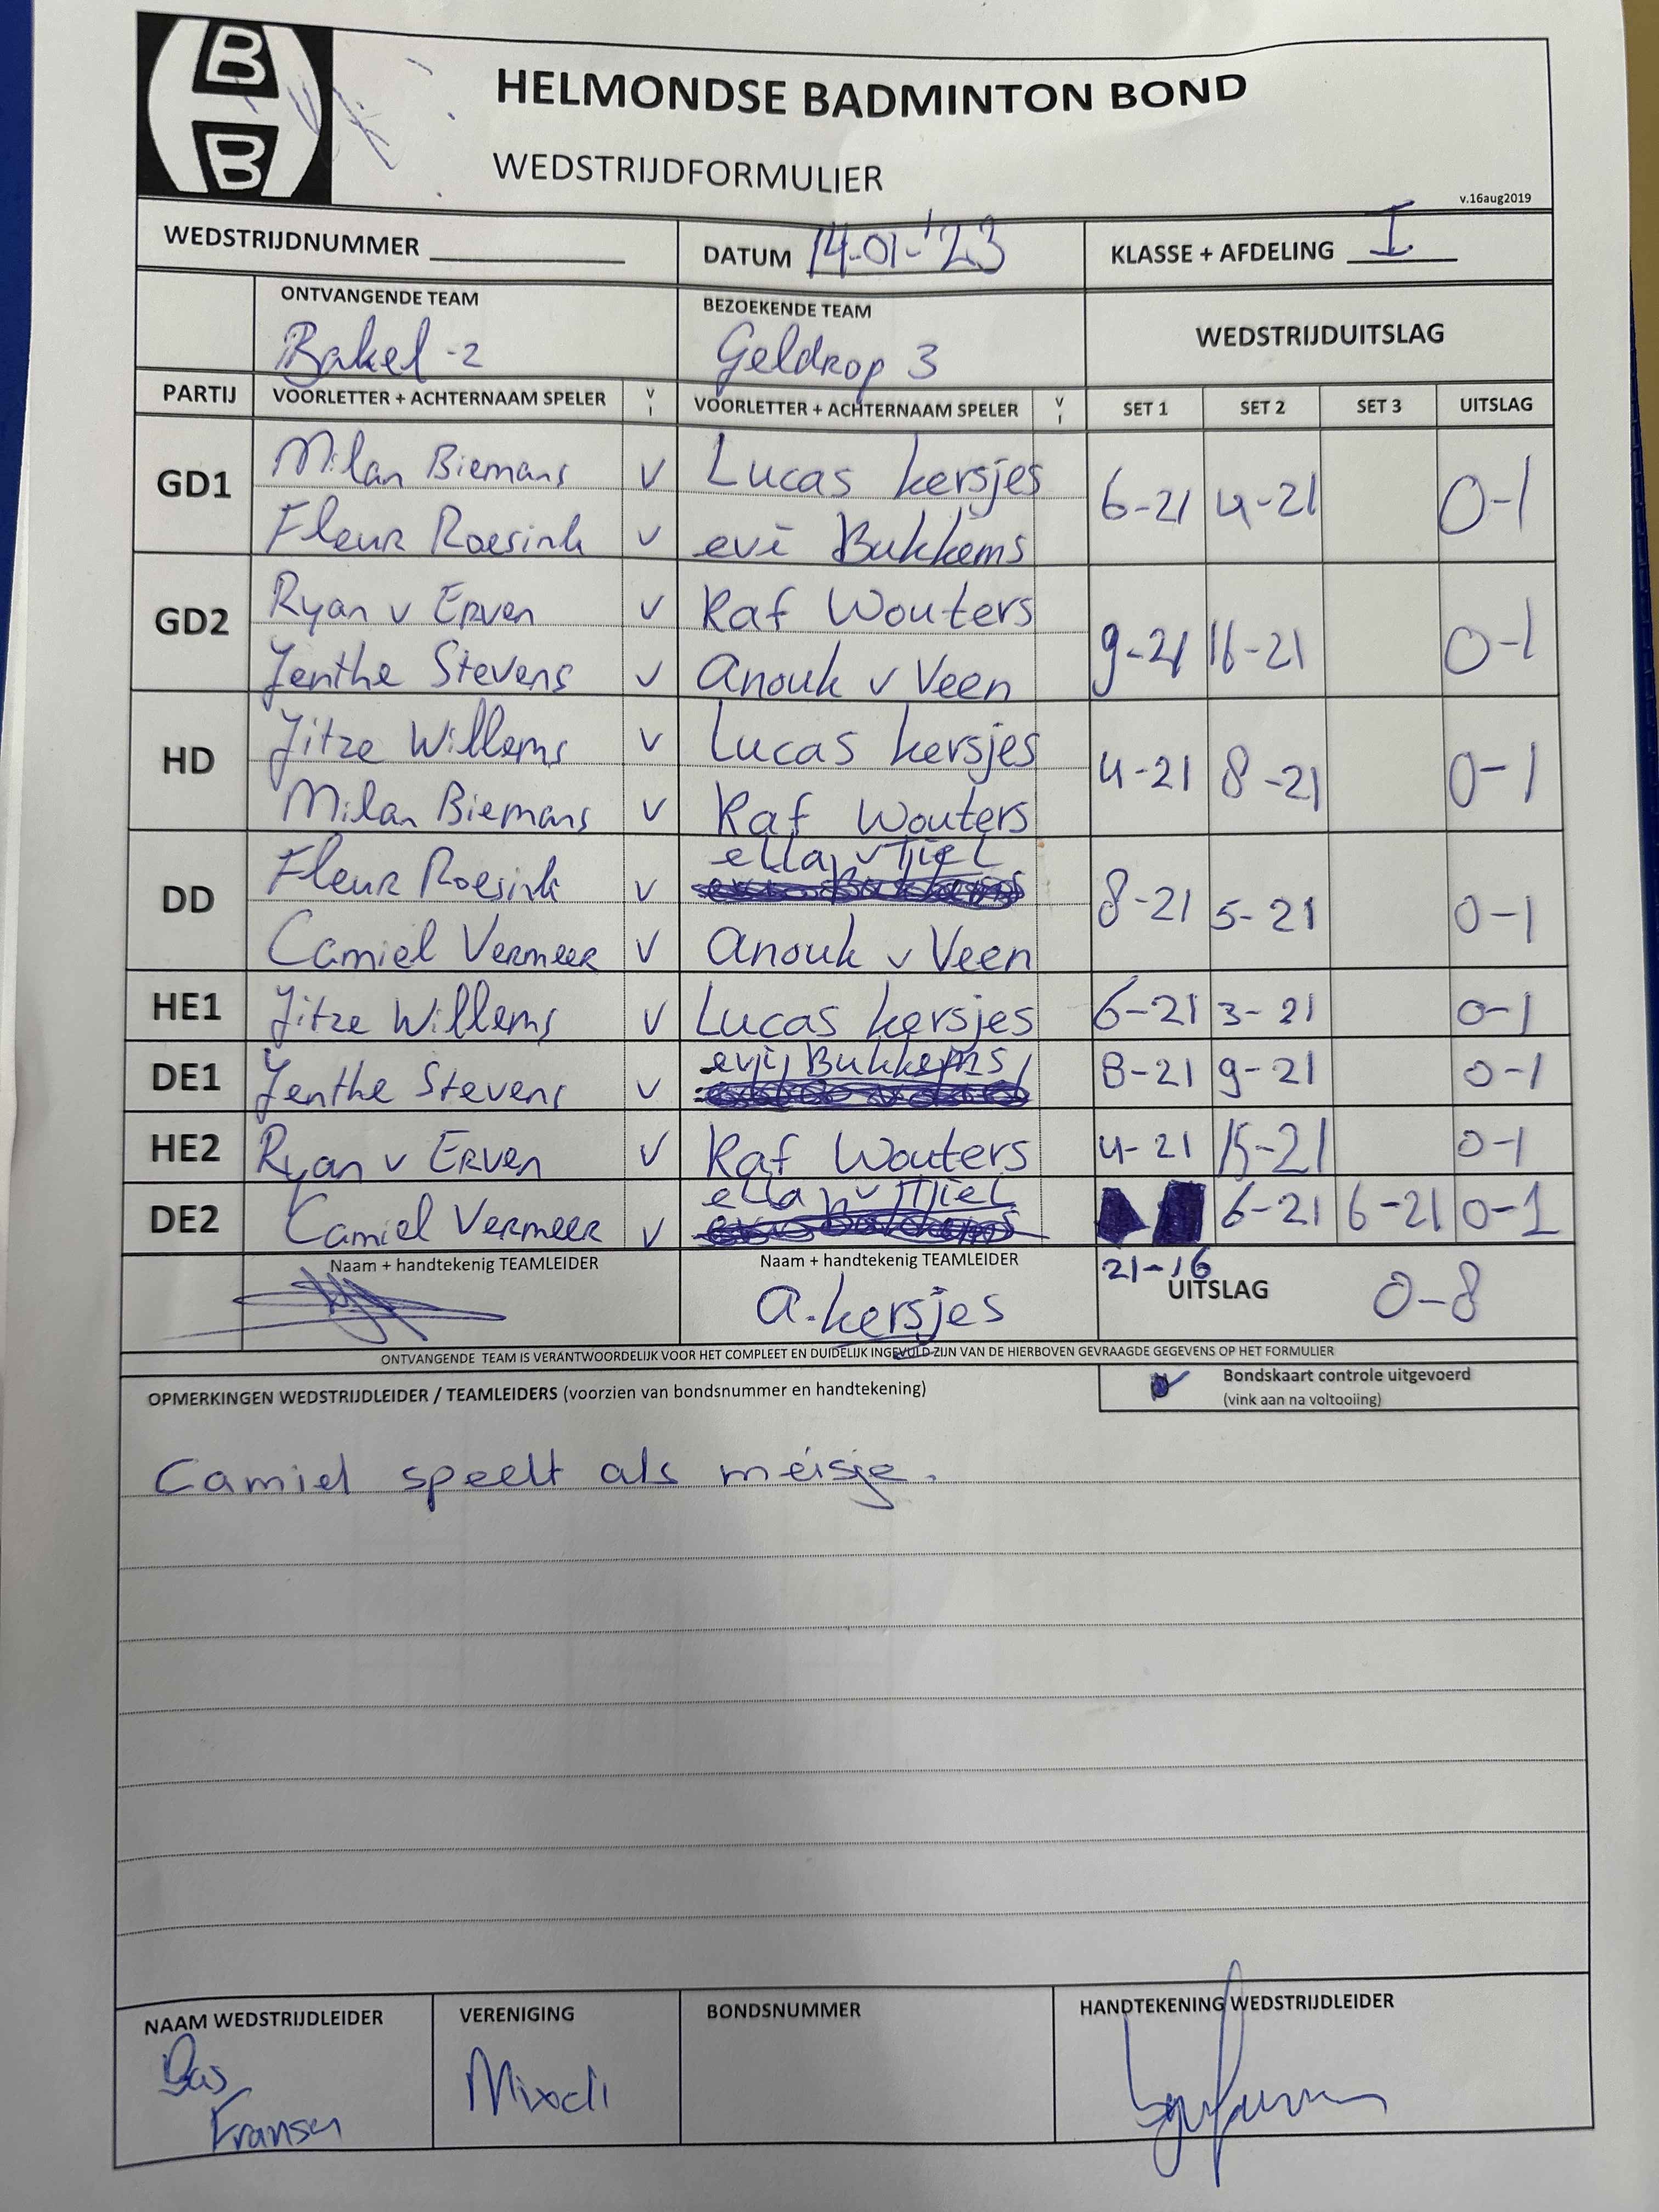 B
B
HELMONDSE BADMINTON BOND
WEDSTRIJDFORMULIER
v.16aug2019
WEDSTRIJDNUMMER
DATUM 14-01-'23
KLASSE + AFDELING I
ONTVANGENDE TEAM
Bakel -2
BEZOEKENDE TEAM
Geldrop 3
WEDSTRIJDUITSLAG
PARTIJ VOORLETTER + ACHTERNAAM SPELER V I VOORLETTER + ACHTERNAAM SPELER V I SET 1 SET 2 SET 3 UITSLAG
GD1 Milan Biemans V Lucas kersjes 6-21 4-21 0-1
Fleur Roesink V evi Bukkems
GD2 Ryan v Erven V Raf Wouters 9-21 16-21 0-1
Jenthe Stevens V Anouk v Veen
HD Jitze Willems V Lucas kersjes 4-21 8-21 0-1
Milan Biemans V Raf Wouters
DD Fleur Roesink V ella v Tiel 8-21 5-21 0-1
Camiel Vermeer V Anouk v Veen
HE1 Jitze Willems V Lucas kersjes 6-21 3-21 0-1
DE1 Jenthe Stevens V evi Bukkems 8-21 9-21 0-1
HE2 Ryan v Erven V Raf Wouters 4-21 15-21 0-1
DE2 Camiel Vermeer V ella v Tiel 6-21 6-21 0-1
21-16
Naam + handtekenig TEAMLEIDER
Naam + handtekenig TEAMLEIDER
a.kersjes
UITSLAG 0-8
ONTVANGENDE TEAM IS VERANTWOORDELIJK VOOR HET COMPLEET EN DUIDELIJK INGEVULD ZIJN VAN DE HIERBOVEN GEVRAAGDE GEGEVENS OP HET FORMULIER
OPMERKINGEN WEDSTRIJDLEIDER / TEAMLEIDERS (voorzien van bondsnummer en handtekening)
Bondskaart controle uitgevoerd
(vink aan na voltooiing)
Camiel speelt als meisje.
NAAM WEDSTRIJDLEIDER
Bas
Fransen
VERENIGING
BONDSNUMMER
HANDTEKENING WEDSTRIJDLEIDER